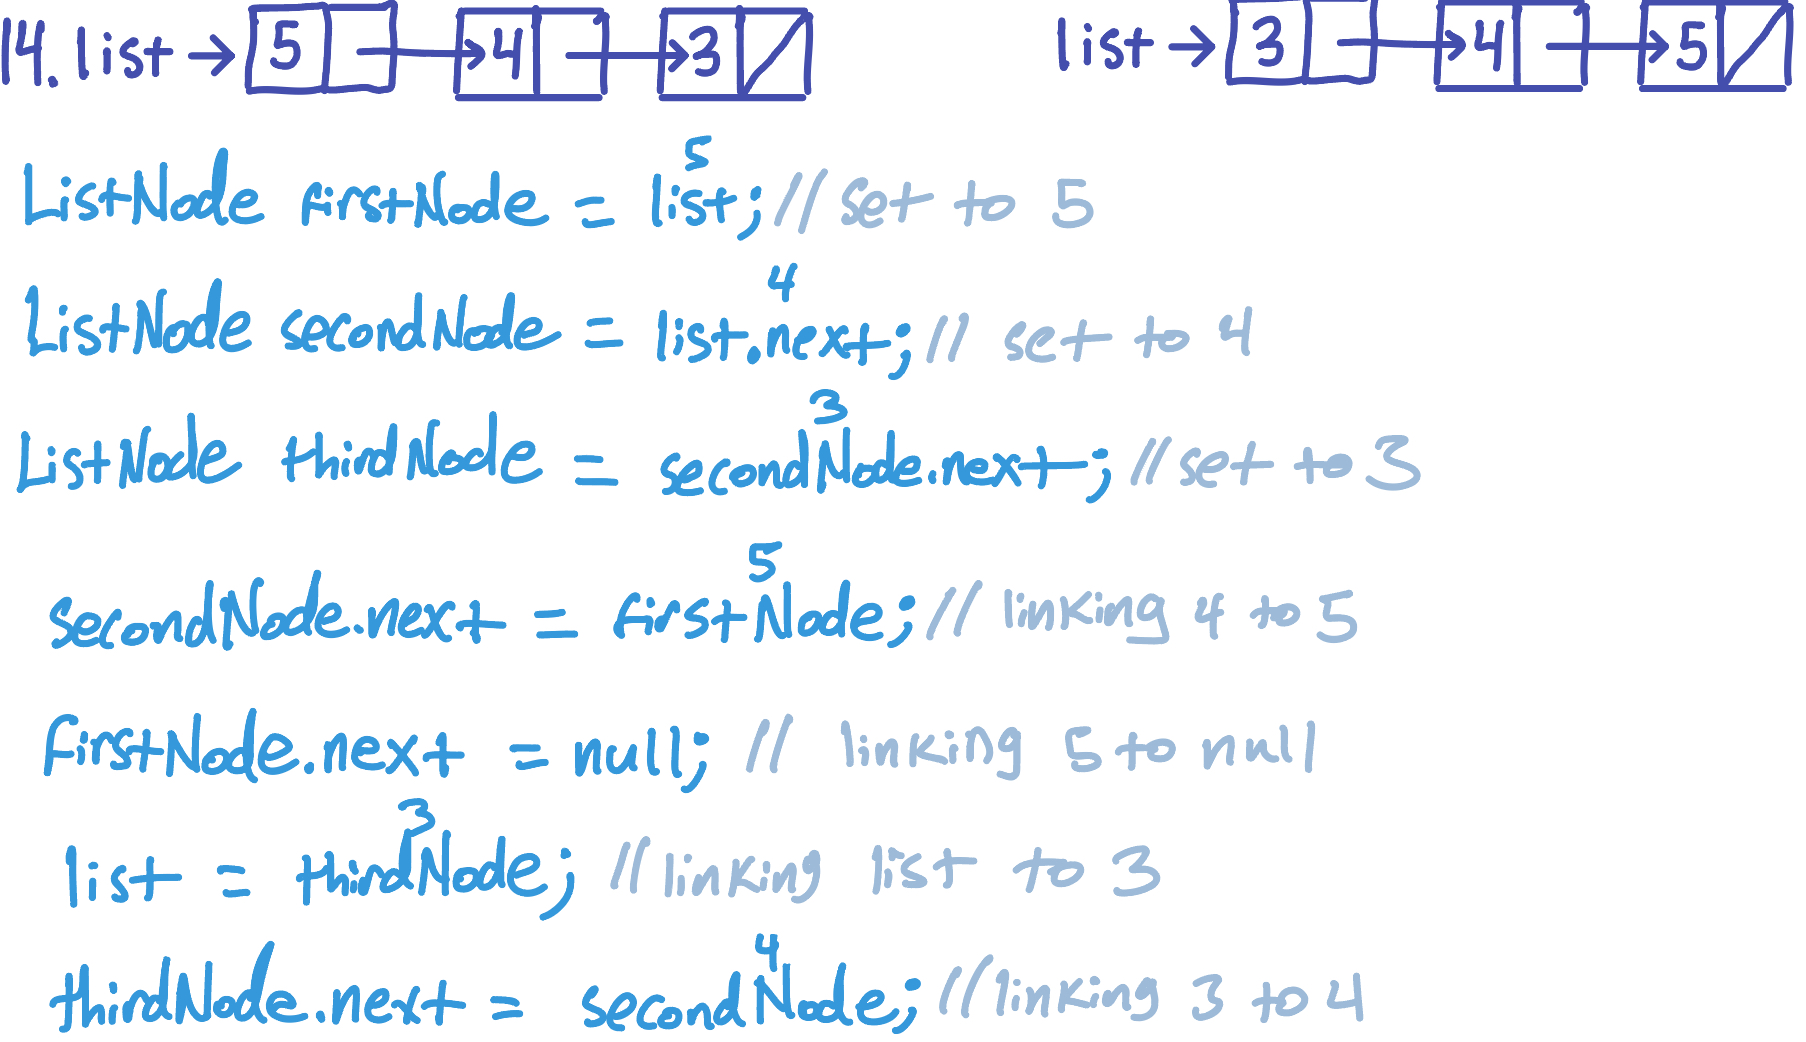 14. list → 5 → 4 → 3 list → 3 → 4 → 5
5
ListNode firstNode = list; // set to 5
4
ListNode secondNode = list.next; // set to 4
3
ListNode thirdNode = secondNode.next; // set to 3
5
secondNode.next = firstNode; // linking 4 to 5
firstNode.next = null; // linking 5 to null
3
list = thirdNode; // linking list to 3
4
thirdNode.next = secondNode; // linking 3 to 4